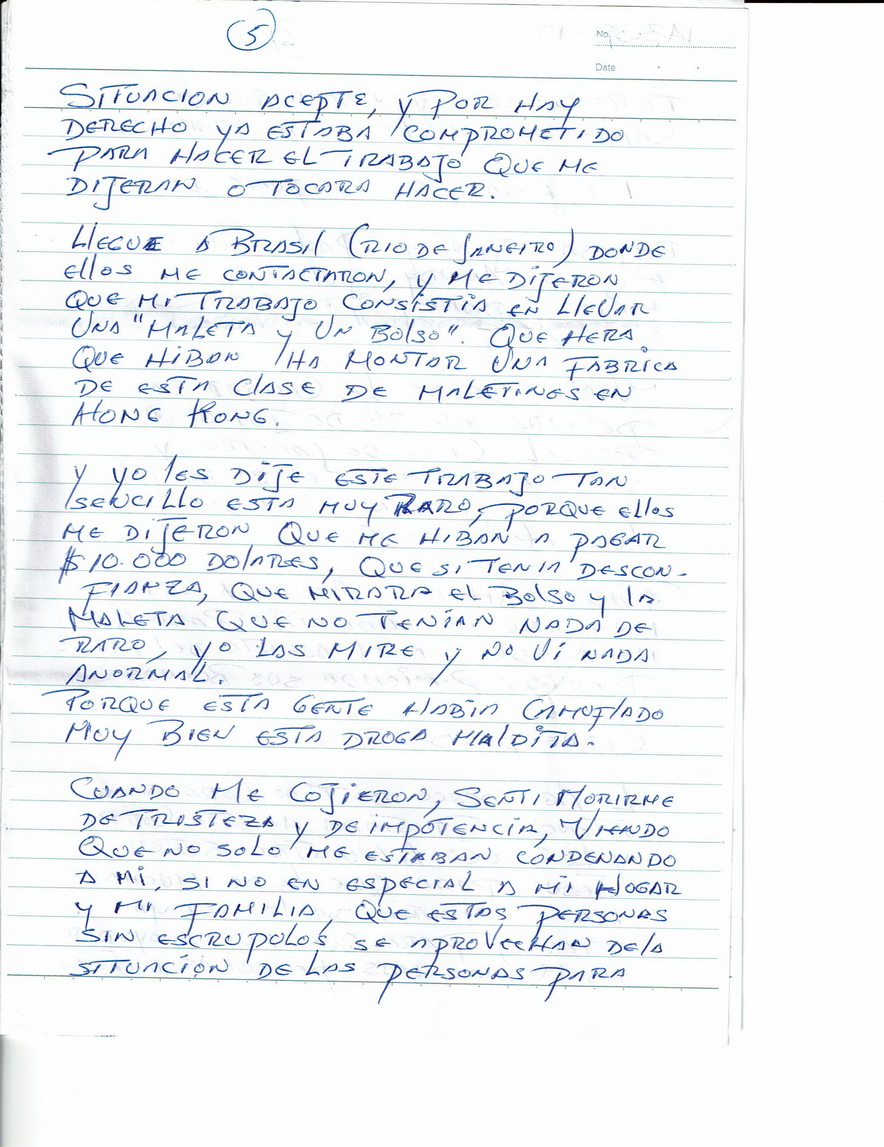 5
No.
Date
SITUACION ACEPTE, Y POR HAY
DERECHO YA ESTABA COMPROMETIDO
PARA HACER EL TRABAJO QUE ME
DIJERAN O TOCARA HACER.
LLEGUE A BRASIL (RIO DE JANEIRO) DONDE
ELLOS ME CONTACTARON, Y ME DIJERON
QUE MI TRABAJO CONSISTIA EN LLEVAR
UNA "MALETA Y UN BOLSO". QUE HERA
QUE HIBAN HA MONTAR UNA FABRICA
DE ESTA CLASE DE MALETINES EN
HONG KONG.
Y YO LES DIJE ESTE TRABAJO TAN
SENCILLO ESTA MUY RARO, PORQUE ELLOS
ME DIJERON QUE ME HIBAN A PAGAR
$10.000 DOLARES, QUE SI TENIA DESCON-
FIANZA, QUE MIRARA EL BOLSO Y LA
MALETA QUE NO TENÍAN NADA DE
RARO, YO LAS MIRE Y NO VI NADA
ANORMAL.
PORQUE ESTA GENTE HABIA CAMUFLADO
MUY BIEN ESTA DROGA MALDITA.
CUANDO ME COJIERON, SENTI MORIRME
DE TRISTEZA Y DE IMPOTENCIA, VIENDO
QUE NO SOLO ME ESTABAN CONDENANDO
A MI, SI NO EN ESPECIAL A MI HOGAR
Y MI FAMILIA, QUE ESTAS PERSONAS
SIN ESCRUPOLOS SE APROVECHAN DE LA
SITUACIÓN DE LAS PERSONAS PARA